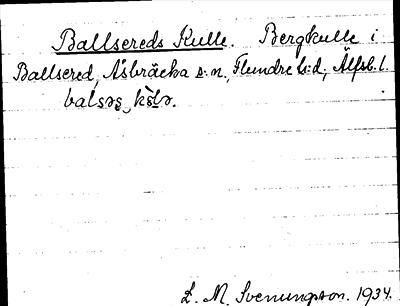 Ballsereds Kulle. Bergkulle i
Ballsered, Åsbräcka s:n, Flundre h:d, Älfsb. l.
L. M. Svenungsson. 1934.